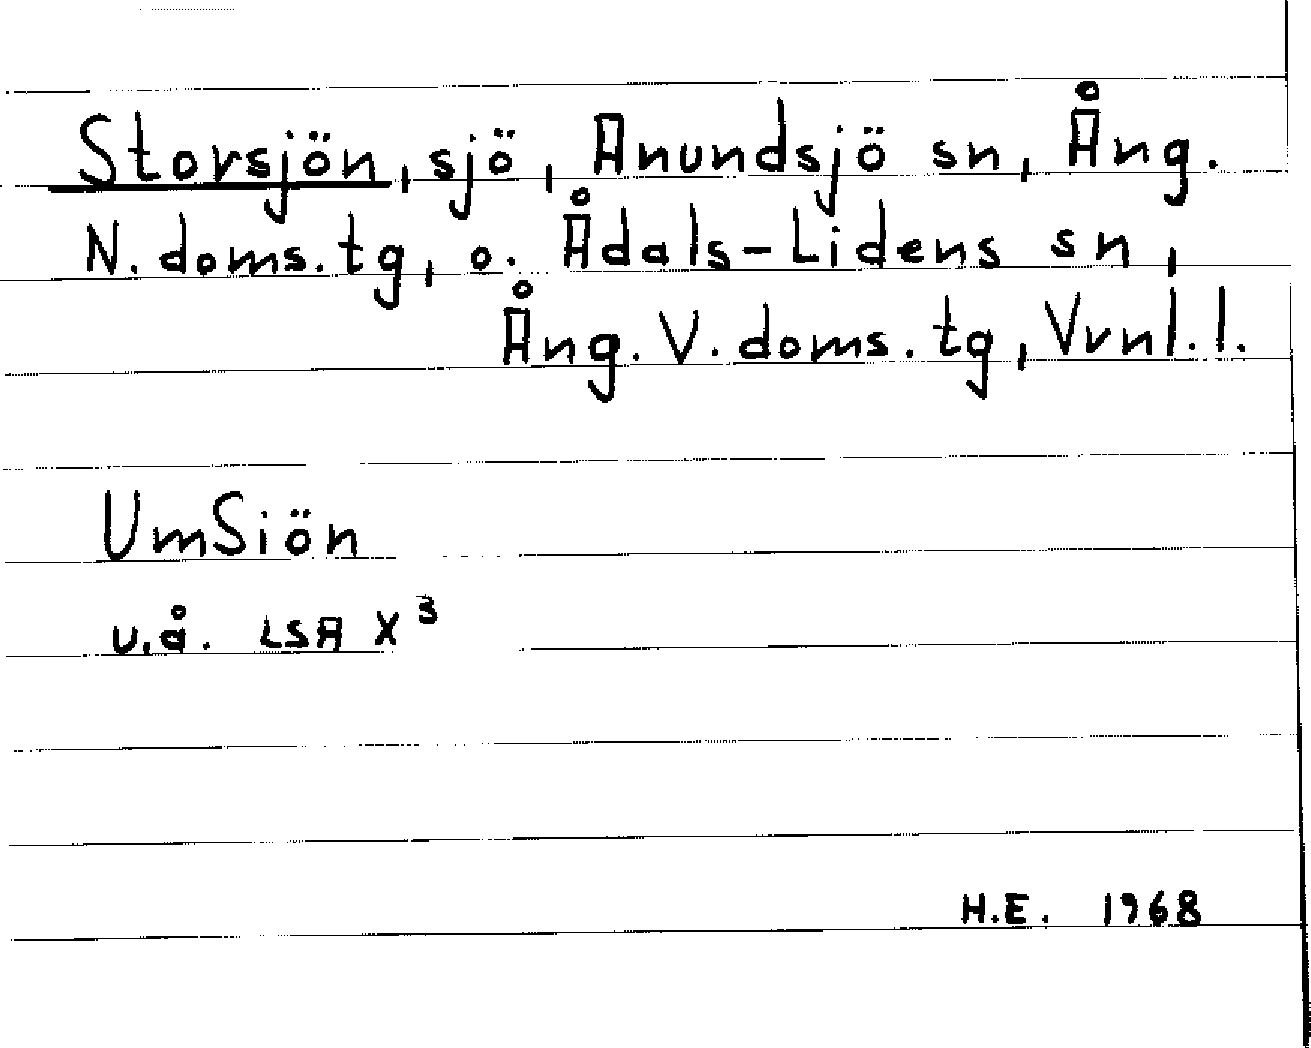 Storsjön, sjö, Anundsjö sn, Ång.
N. doms. tg, o. Ådals-Lidens sn,
Ång. V. doms. tg, Vrnl. l.
UmSiön
u.å. LSA X³
H.E. 1968